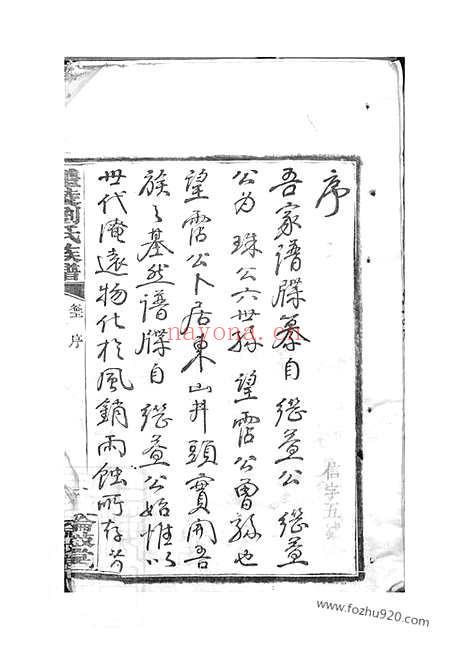 序
吾家譜牒纂自 繼萱公 繼萱
公為 珠公六世孫 望霑公曾孫也
望霑公卜居東山井頭實開吾
族之基然譜牒自 繼萱公始惟以
世代淹遠物化於風銷雨蝕所存
劉氏族譜
序
nayona.cn
信字五
www.fozhu920.com